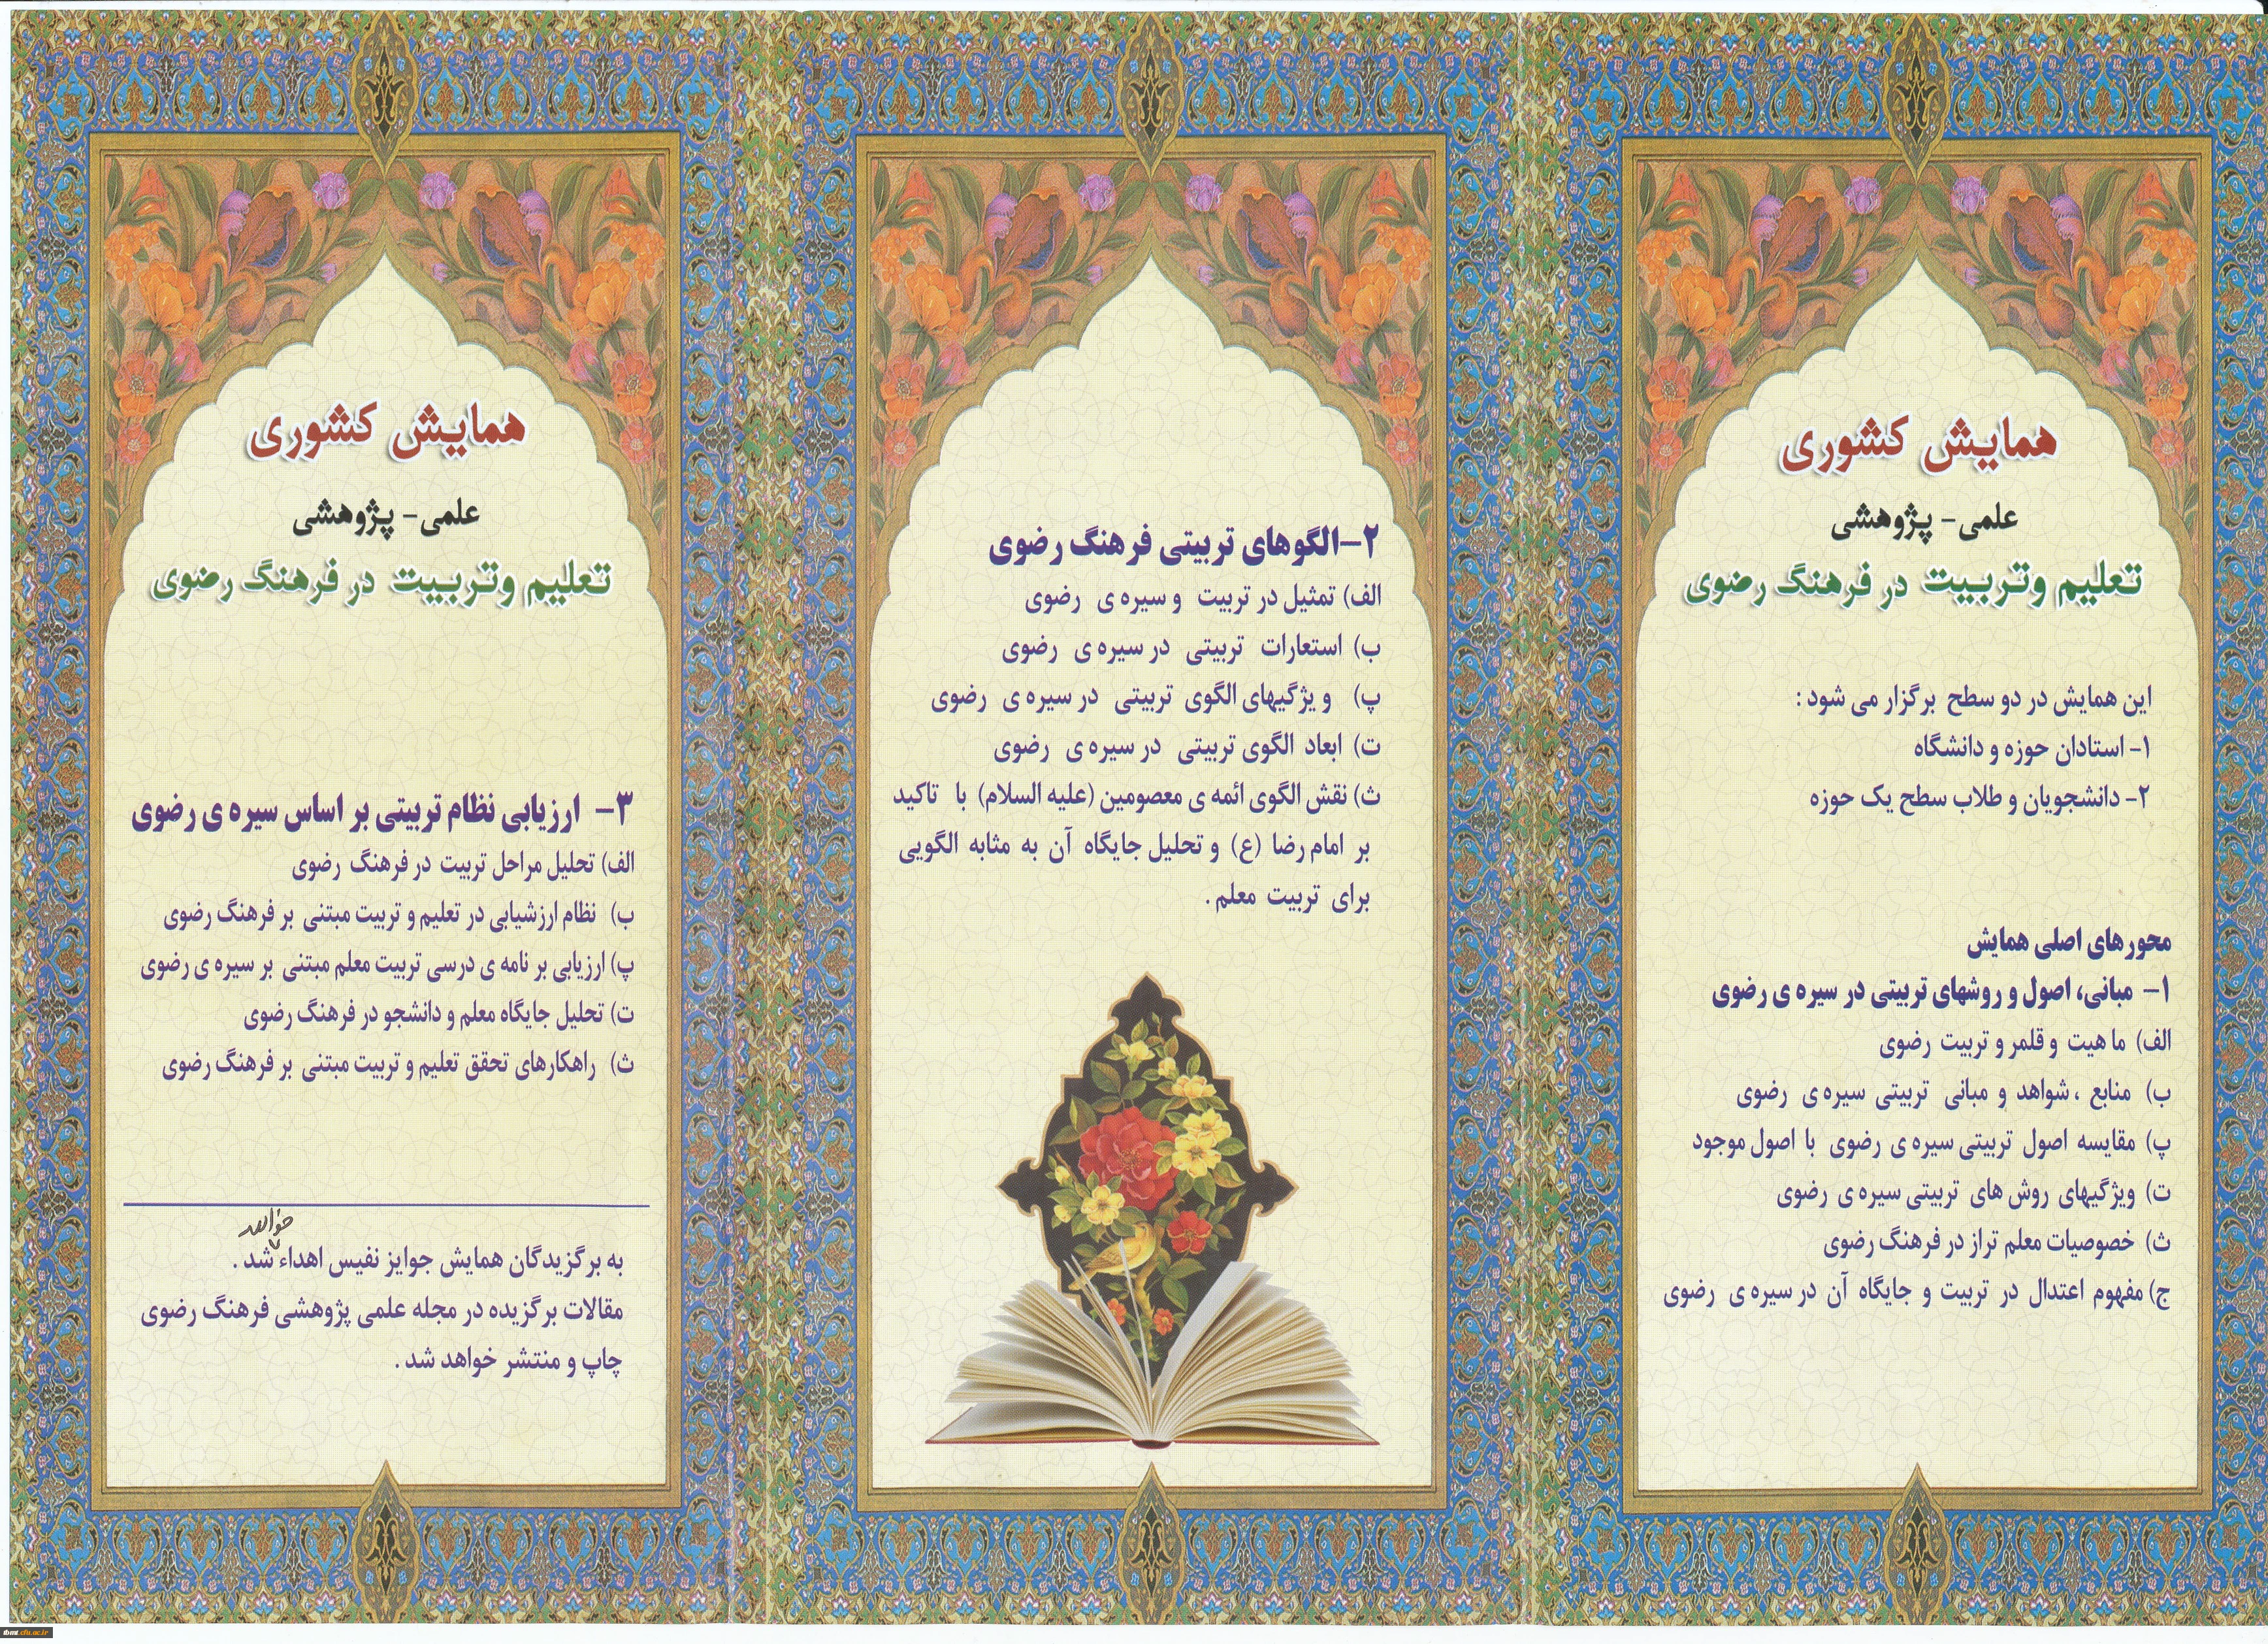 همایش کشوری
علمی- پژوهشی
تعلیم وتربیت در فرهنگ رضوی
این همایش در دو سطح برگزار می شود :
۱- استادان حوزه و دانشگاه
۲- دانشجویان و طلاب سطح یک حوزه
محورهای اصلی همایش
۱- مبانی، اصول و روشهای تربیتی در سیره ی رضوی
الف) ماهیت و قلمرو تربیت رضوی
ب) منابع ، شواهد و مبانی تربیتی سیره ی رضوی
پ) مقایسه اصول تربیتی سیره ی رضوی با اصول موجود
ت) ویژگیهای روش های تربیتی سیره ی رضوی
ث) خصوصیات معلم تراز در فرهنگ رضوی
ج) مفهوم اعتدال در تربیت و جایگاه آن در سیره ی رضوی
۲-الگوهای تربیتی فرهنگ رضوی
الف) تمثیل در تربیت و سیره ی رضوی
ب) استعارات تربیتی در سیره ی رضوی
پ) ویژگیهای الگوی تربیتی در سیره ی رضوی
ت) ابعاد الگوی تربیتی در سیره ی رضوی
ث) نقش الگوی ائمه ی معصومین (علیه السلام) با تاکید
بر امام رضا (ع) و تحلیل جایگاه آن به مثابه الگویی
برای تربیت معلم .
همایش کشوری
علمی- پژوهشی
تعلیم وتربیت در فرهنگ رضوی
۳- ارزیابی نظام تربیتی بر اساس سیره ی رضوی
الف) تحلیل مراحل تربیت در فرهنگ رضوی
ب) نظام ارزشیابی در تعلیم و تربیت مبتنی بر فرهنگ رضوی
پ) ارزیابی برنامه ی درسی تربیت معلم مبتنی بر سیره ی رضوی
ت) تحلیل جایگاه معلم و دانشجو در فرهنگ رضوی
ث) راهکارهای تحقق تعلیم و تربیت مبتنی بر فرهنگ رضوی
خواهد
به برگزیدگان همایش جوایز نفیس اهداء شد .
مقالات برگزیده در مجله علمی پژوهشی فرهنگ رضوی
چاپ و منتشر خواهد شد .
ibmt.cfu.ac.ir